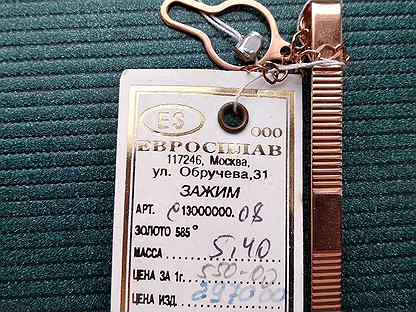 ES
ООО
ЕВРОСПЛАВ
117246, Москва,
ул. Обручева,31
ЗАЖИМ
АРТ. 013000000.08
ЗОЛОТО 585°
МАССА 5,40
ЦЕНА ЗА 1г. 550-00
ЦЕНА ИЗД.